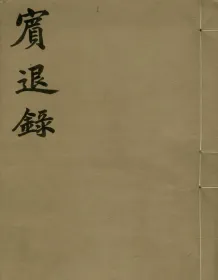 賓退錄